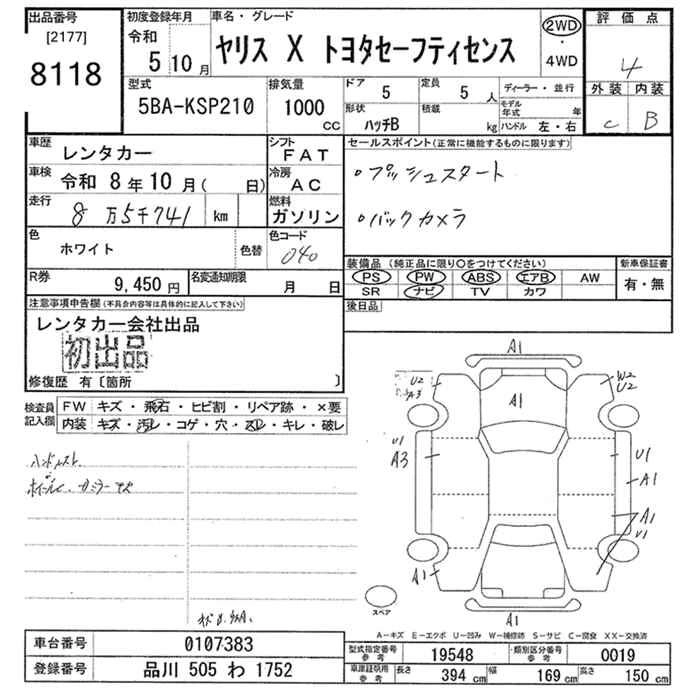 出品番号
[2177]
8118
初度登録年月
令和
5 10 月
車名・グレード
ヤリス X トヨタセーフティセンス
2WD
・
4WD
評価点
4
型式
5BA-KSP210
排気量
1000
CC
ドア
5
定員
5 人
形状
ハッチB
積載
kg
ディーラー・並行
モデル年式 年
ハンドル 左・右
外装 内装
C B
車歴
レンタカー
シフト
FAT
車検
令和 8年 10月( 日)
冷房
AC
走行
8万5千741 km
燃料
ガソリン
色
ホワイト
色替
色コード
040
R券
9,450円
名変通知期限
月 日
セールスポイント(正常に機能するものに限ります)
○プッシュスタート
○バックカメラ
装備品(純正品に限り○をつけてください)
PS PW ABS エアB AW
SR ナビ TV カワ
新車保証書
有・無
後日品
注意事項申告欄(不具合内容等は具体的に記入して下さい)
レンタカー会社出品
初出品
修復歴 有〔箇所 〕
検査員
記入欄
FW キズ・飛石・ヒビ割・リペア跡・×要
内装 キズ・汚レ・コゲ・穴・スレ・キレ・破レ
A1
U2
A3
W2
U2
A1
U1
A3
U1
A1
A1
U1
A1
A1
スペア
A-キズ E-エクボ U-凹み W-補修跡 S-サビ C-腐食 XX-交換済
車台番号
0107383
登録番号
品川 505 わ 1752
型式指定番号
参考
19548
類別区分番号
参考
0019
車庫証明用
参考
長さ 394 cm 幅 169 cm 高さ 150 cm